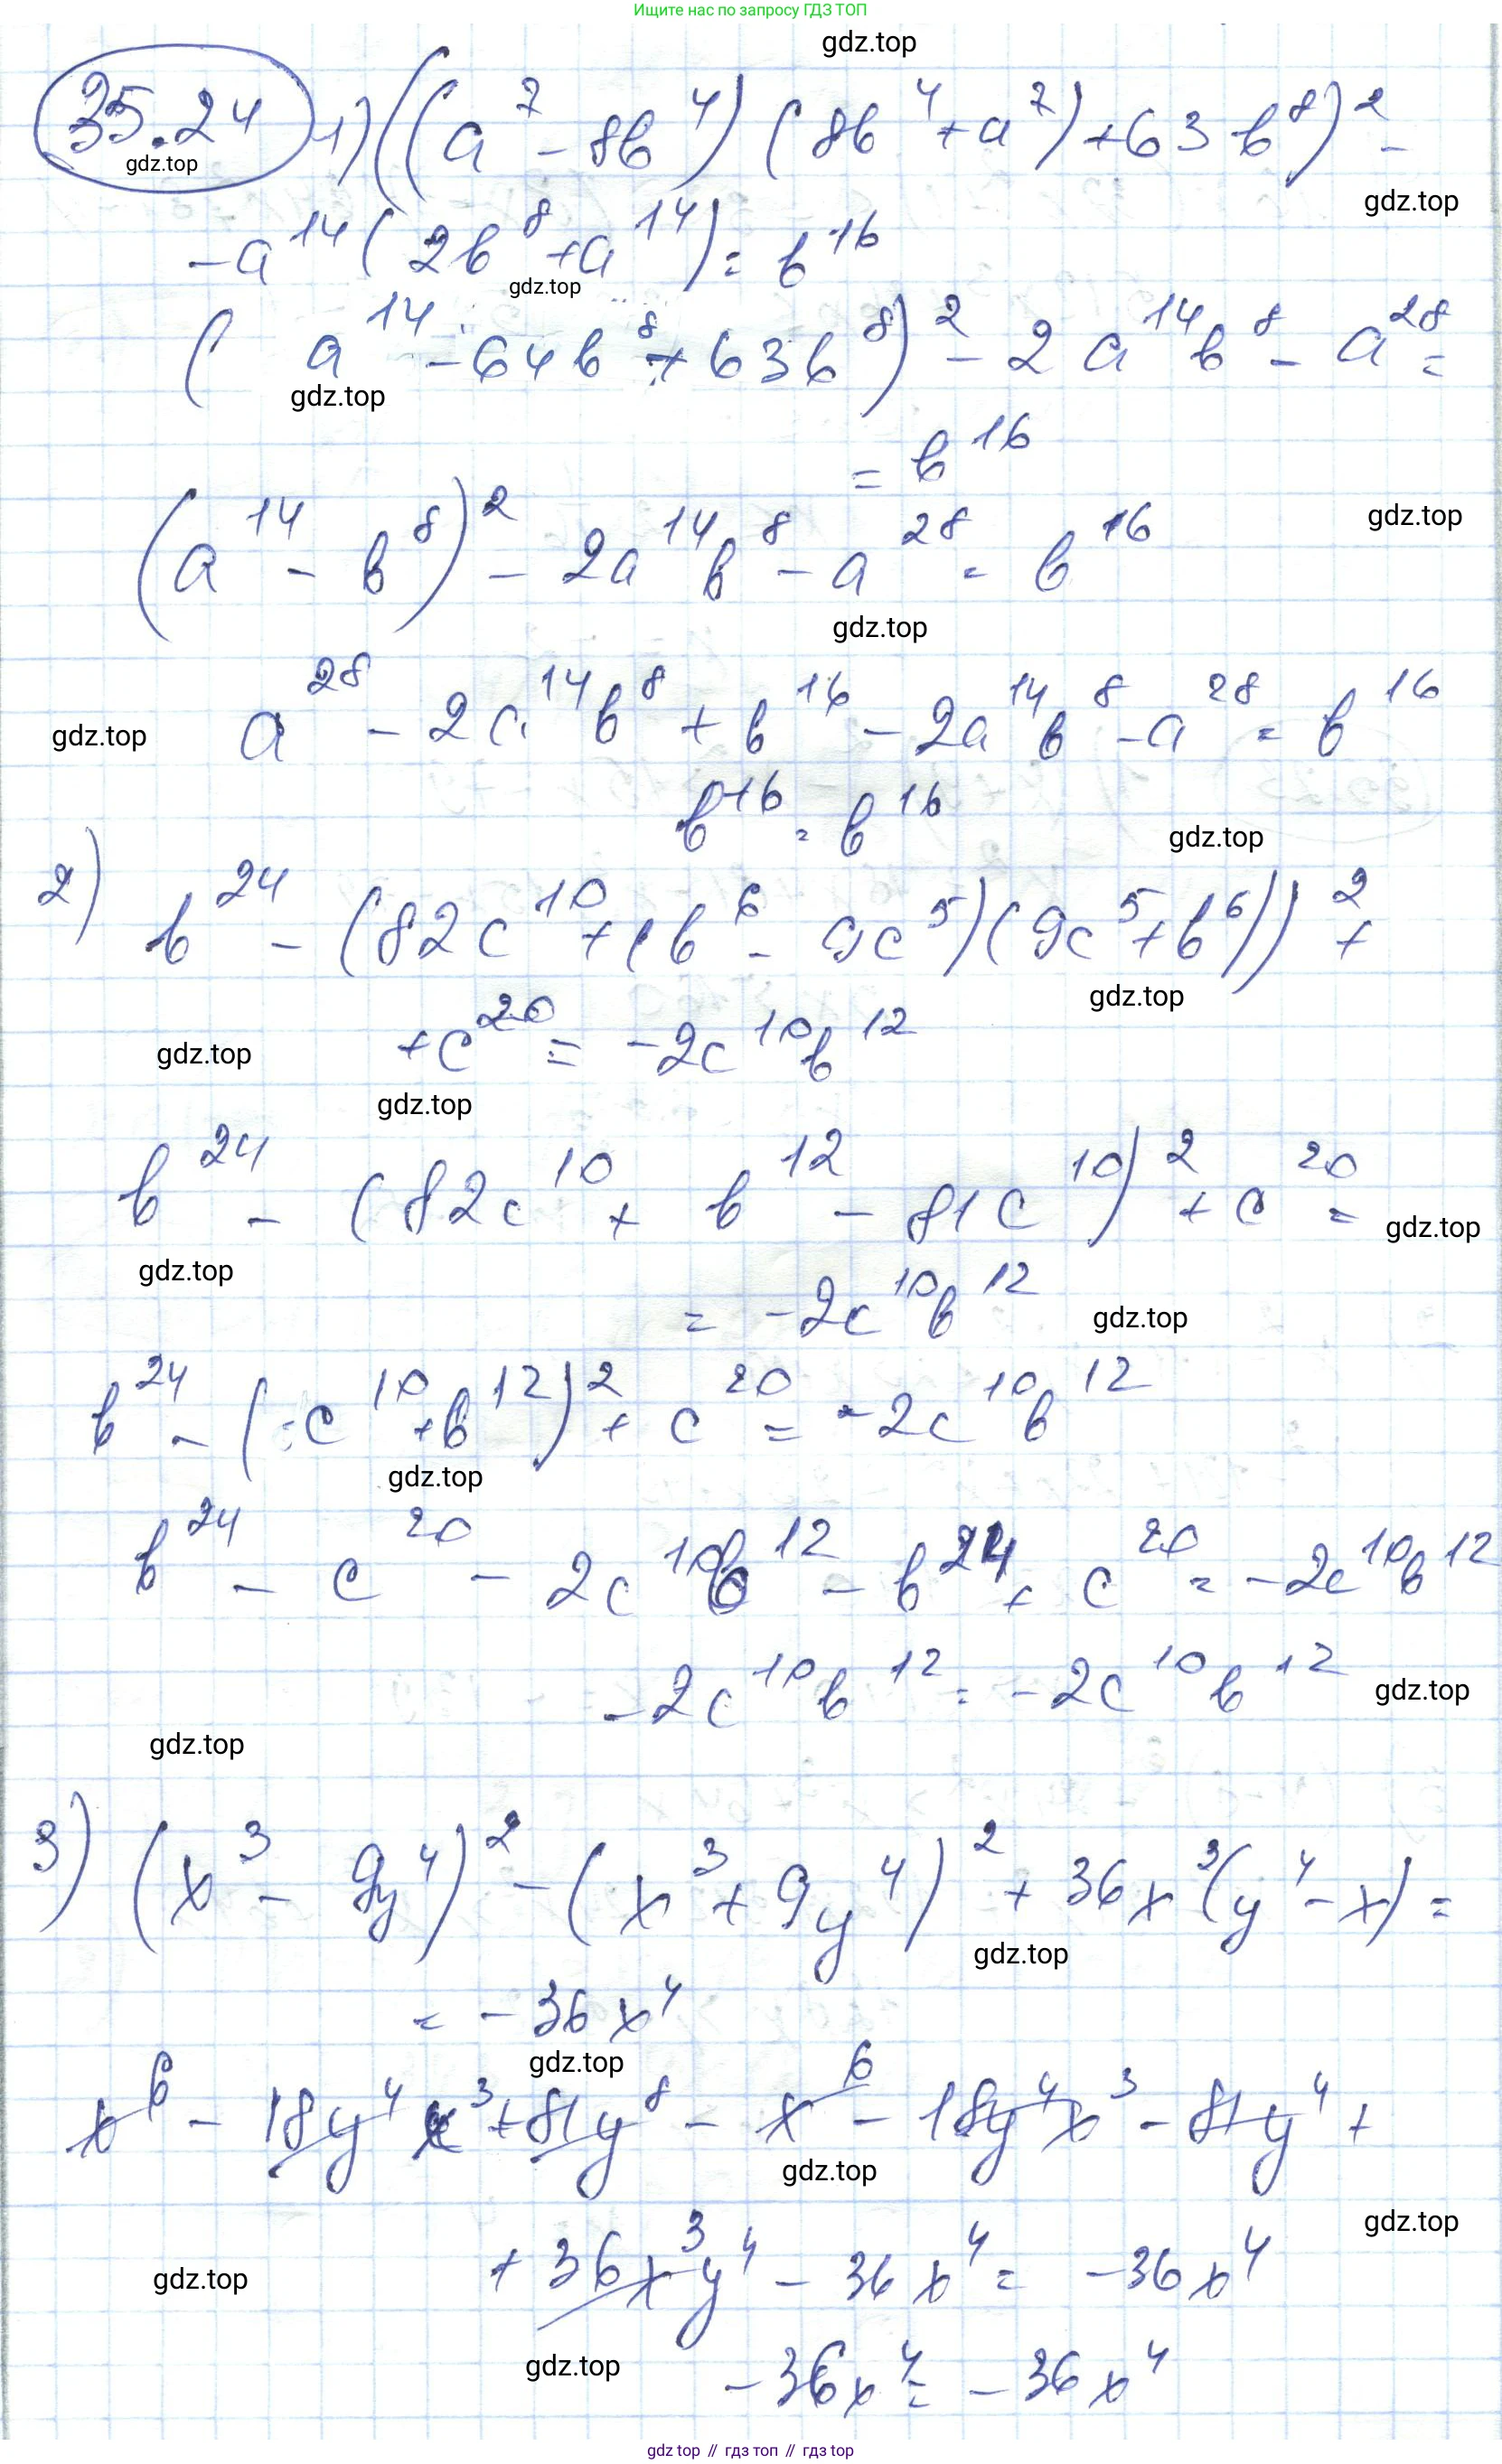 Ищите нас по запросу ГДЗ ТОП
gdz.top
35.24 1) ((a⁷ - 8b⁴) (8b⁴ + a⁷) + 63b⁸)² -
gdz.top
gdz.top
- a¹⁴ (2b⁸ + a¹⁴) = b¹⁶
gdz.top
(a¹⁴ - 64b⁸ + 63b⁸)² - 2a¹⁴b⁸ - a²⁸ =
gdz.top
= b¹⁶
(a¹⁴ - b⁸)² - 2a¹⁴b⁸ - a²⁸ = b¹⁶
gdz.top
gdz.top
a²⁸ - 2a¹⁴b⁸ + b¹⁶ - 2a¹⁴b⁸ - a²⁸ = b¹⁶
gdz.top
b¹⁶ = b¹⁶
gdz.top
2) b²⁴ - (82c¹⁰ + (b⁶ - 9c⁵)(9c⁵ + b⁶))² +
gdz.top
+ c²⁰ = -2c¹⁰b¹²
gdz.top
gdz.top
b²⁴ - (82c¹⁰ + b¹² - 81c¹⁰)² + c²⁰ =
gdz.top
gdz.top
= -2c¹⁰b¹²
gdz.top
b²⁴ - (c¹⁰ + b¹²)² + c²⁰ = -2c¹⁰b¹²
gdz.top
b²⁴ - c²⁰ - 2c¹⁰b¹² - b²⁴ + c²⁰ = -2c¹⁰b¹²
-2c¹⁰b¹² = -2c¹⁰b¹²
gdz.top
gdz.top
3) (x³ - 9y⁴)² - (x³ + 9y⁴)² + 36x³(y⁴ - x) =
gdz.top
= -36x⁴
gdz.top
x⁶ - 18y⁴x³ + 81y⁸ - x⁶ - 18y⁴x³ - 81y⁴ +
gdz.top
gdz.top
+ 36x³y⁴ - 36x⁴ = -36x⁴
gdz.top
-36x⁴ = -36x⁴
gdz.top
gdz top // гдз топ // гдз top